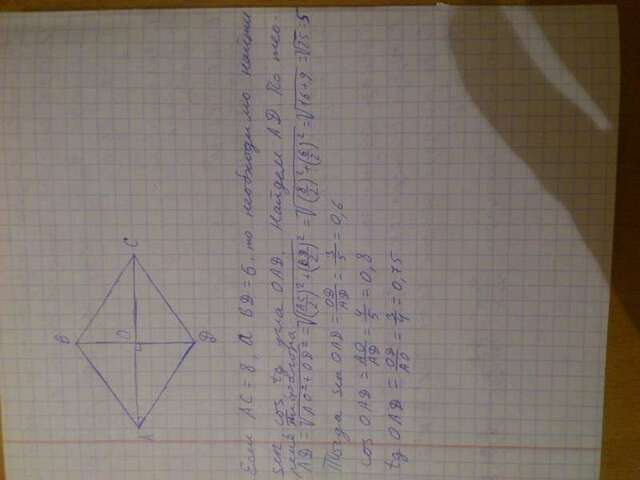 B
A
O
C
D
Если AC = 8, а BD = 6, то необходимо найти
sin, cos, tg угла OAD. Найдем AD. По тео-
реме Пифагора
AD = √(AO² + OD²) = √((AC/2)² + (BD/2)²) = √((8/2)² + (6/2)²) = √(16+9) = √25 = 5
Тогда sin OAD = OD/AD = 3/5 = 0,6
cos OAD = AO/AD = 4/5 = 0,8
tg OAD = OD/AO = 3/4 = 0,75